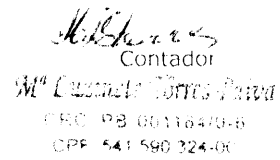 Contador
Mª Torres Paiva
CRC PB 001184/0-6
CPF 541 590 324-00